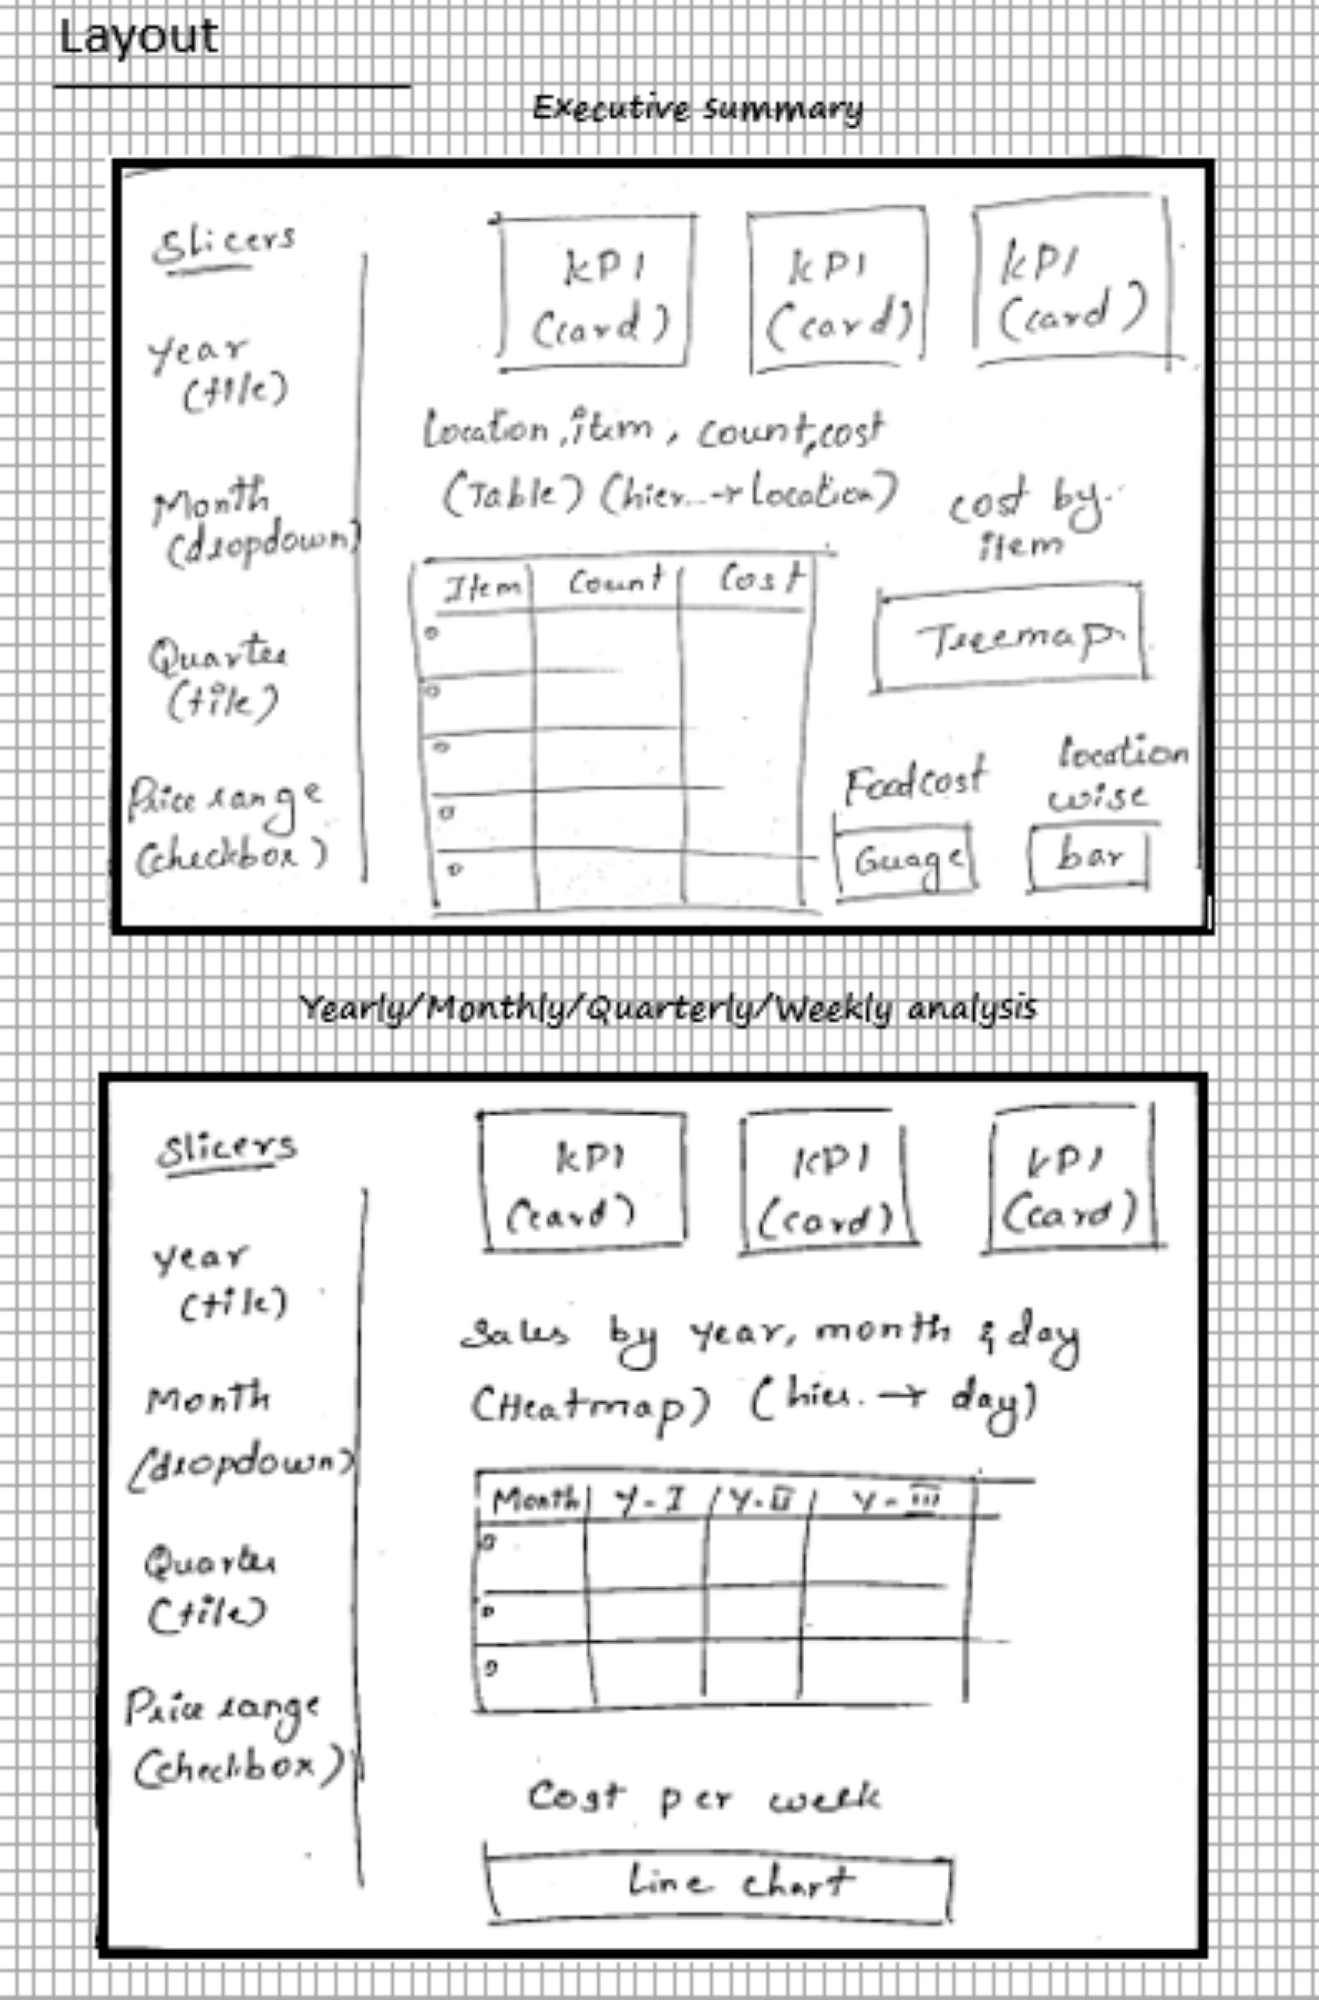 Layout
Executive summary
Slicers
Year
(tile)
Month
(dropdown)
Quarter
(tile)
Price range
(checkbox)
KPI
(card)
KPI
(card)
KPI
(card)
Location, item, count, cost
(Table) (hier. → location)
Item Count Cost
cost by
item
Treemap
Food cost
Guage
location
wise
bar
Yearly/Monthly/Quarterly/Weekly analysis
Slicers
Year
(tile)
Month
(dropdown)
Quarter
(tile)
Price range
(checkbox)
KPI
(card)
KPI
(card)
KPI
(card)
Sales by year, month & day
(Heatmap) (hier. → day)
Month Y-I Y-II Y-III
Cost per week
Line chart